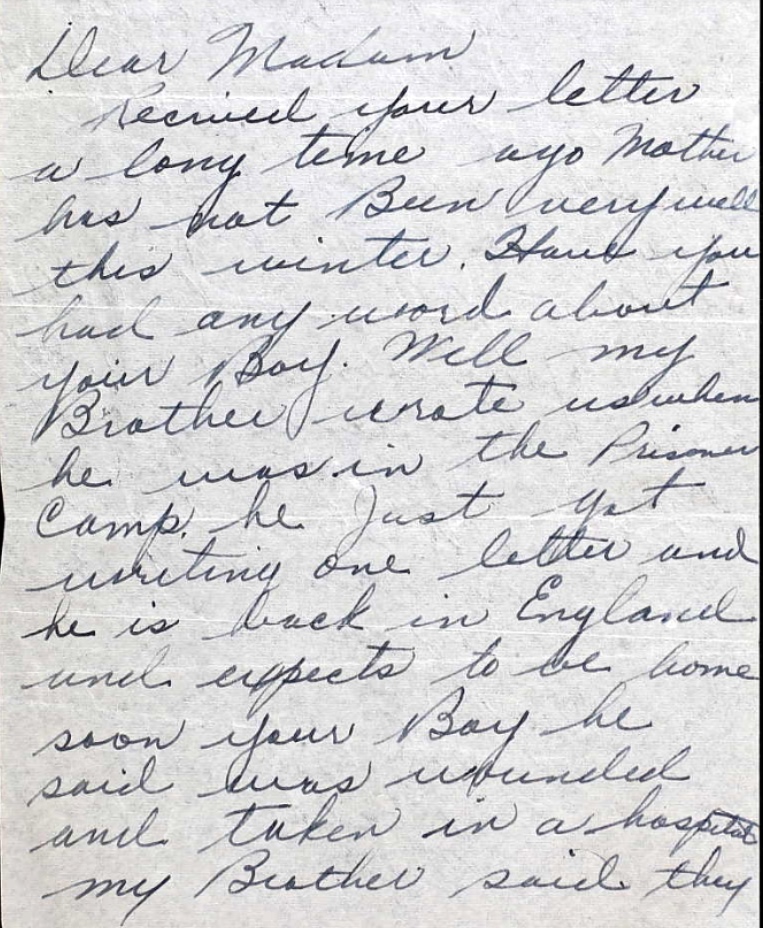 Dear Madam
Recrived your letter
a long time ago Mother
has not Been very well
this winter. Have you
had any word about
your Boy. Well my
Brother wrote us when
he was in the Prisoner
Camp. he Just got
writing one letter and
he is back in England
and expects to be home
soon your Boy he
said was wounded
and taken in a hospital
my Brother said they